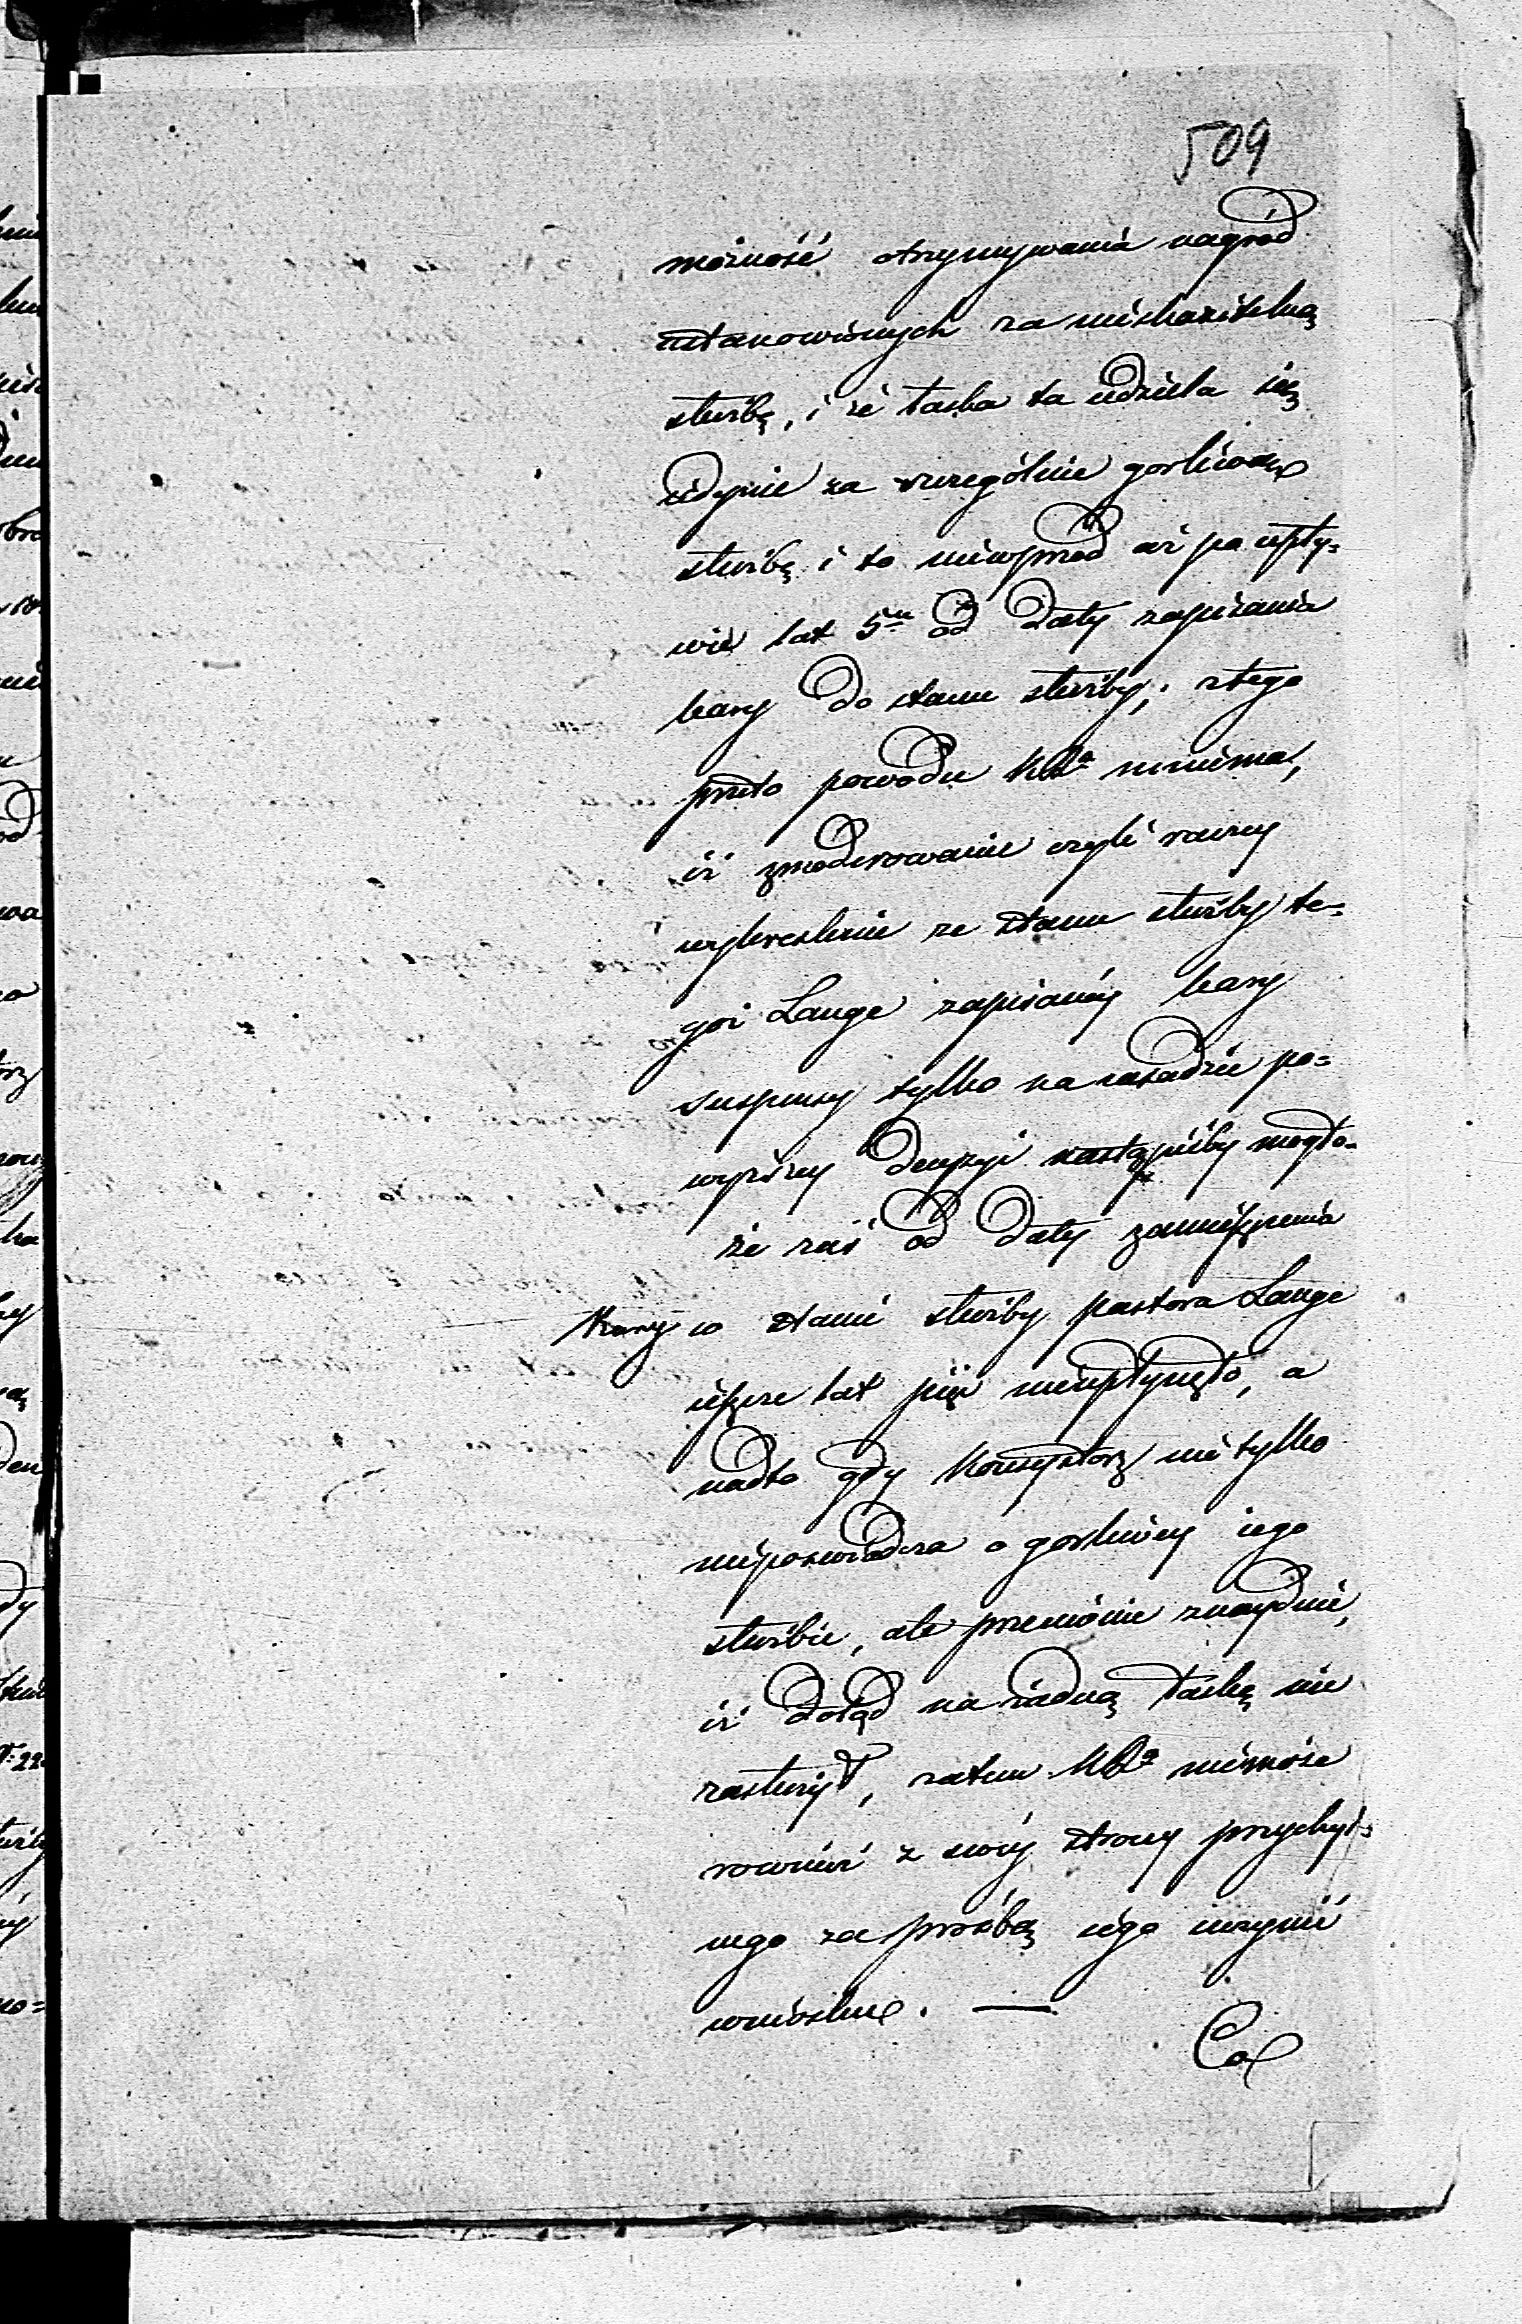 509
możność otrzymywania nagród
ustanowionych za nieskazitelną
służbę, i że łaska ta udziela się
iedynie za szczególnie gorliwą
służbę i to niewprzód aż po upły=
wie lat 5ciu od daty zapisania
kary do stanu służby; z tego
przeto powodu KRa mniema,
iż zmoderowanie czyli raczey
wykreslenie ze stanu służby te=
goż Lange zapisanéy kary
suspensy tylko na zasadzie po=
wyższey decyzyi nastąpićby mogło.
że zaś od daty zamieszczenia
kary w stanie służby pastora Lange
ieszcze lat pięć nieupłynęło, a
nadto gdy Konsystorz nietylko
nieposwiadcza o gorliwey iego
służbie, ale przeciwnie znayduie,
iż dotąd na żadną łaskę nie
zasłużył, zatem KRa niemoże
rownież z swéy strony przychyl=
nego za prośbą iego uczynić
wniosku. —
Co